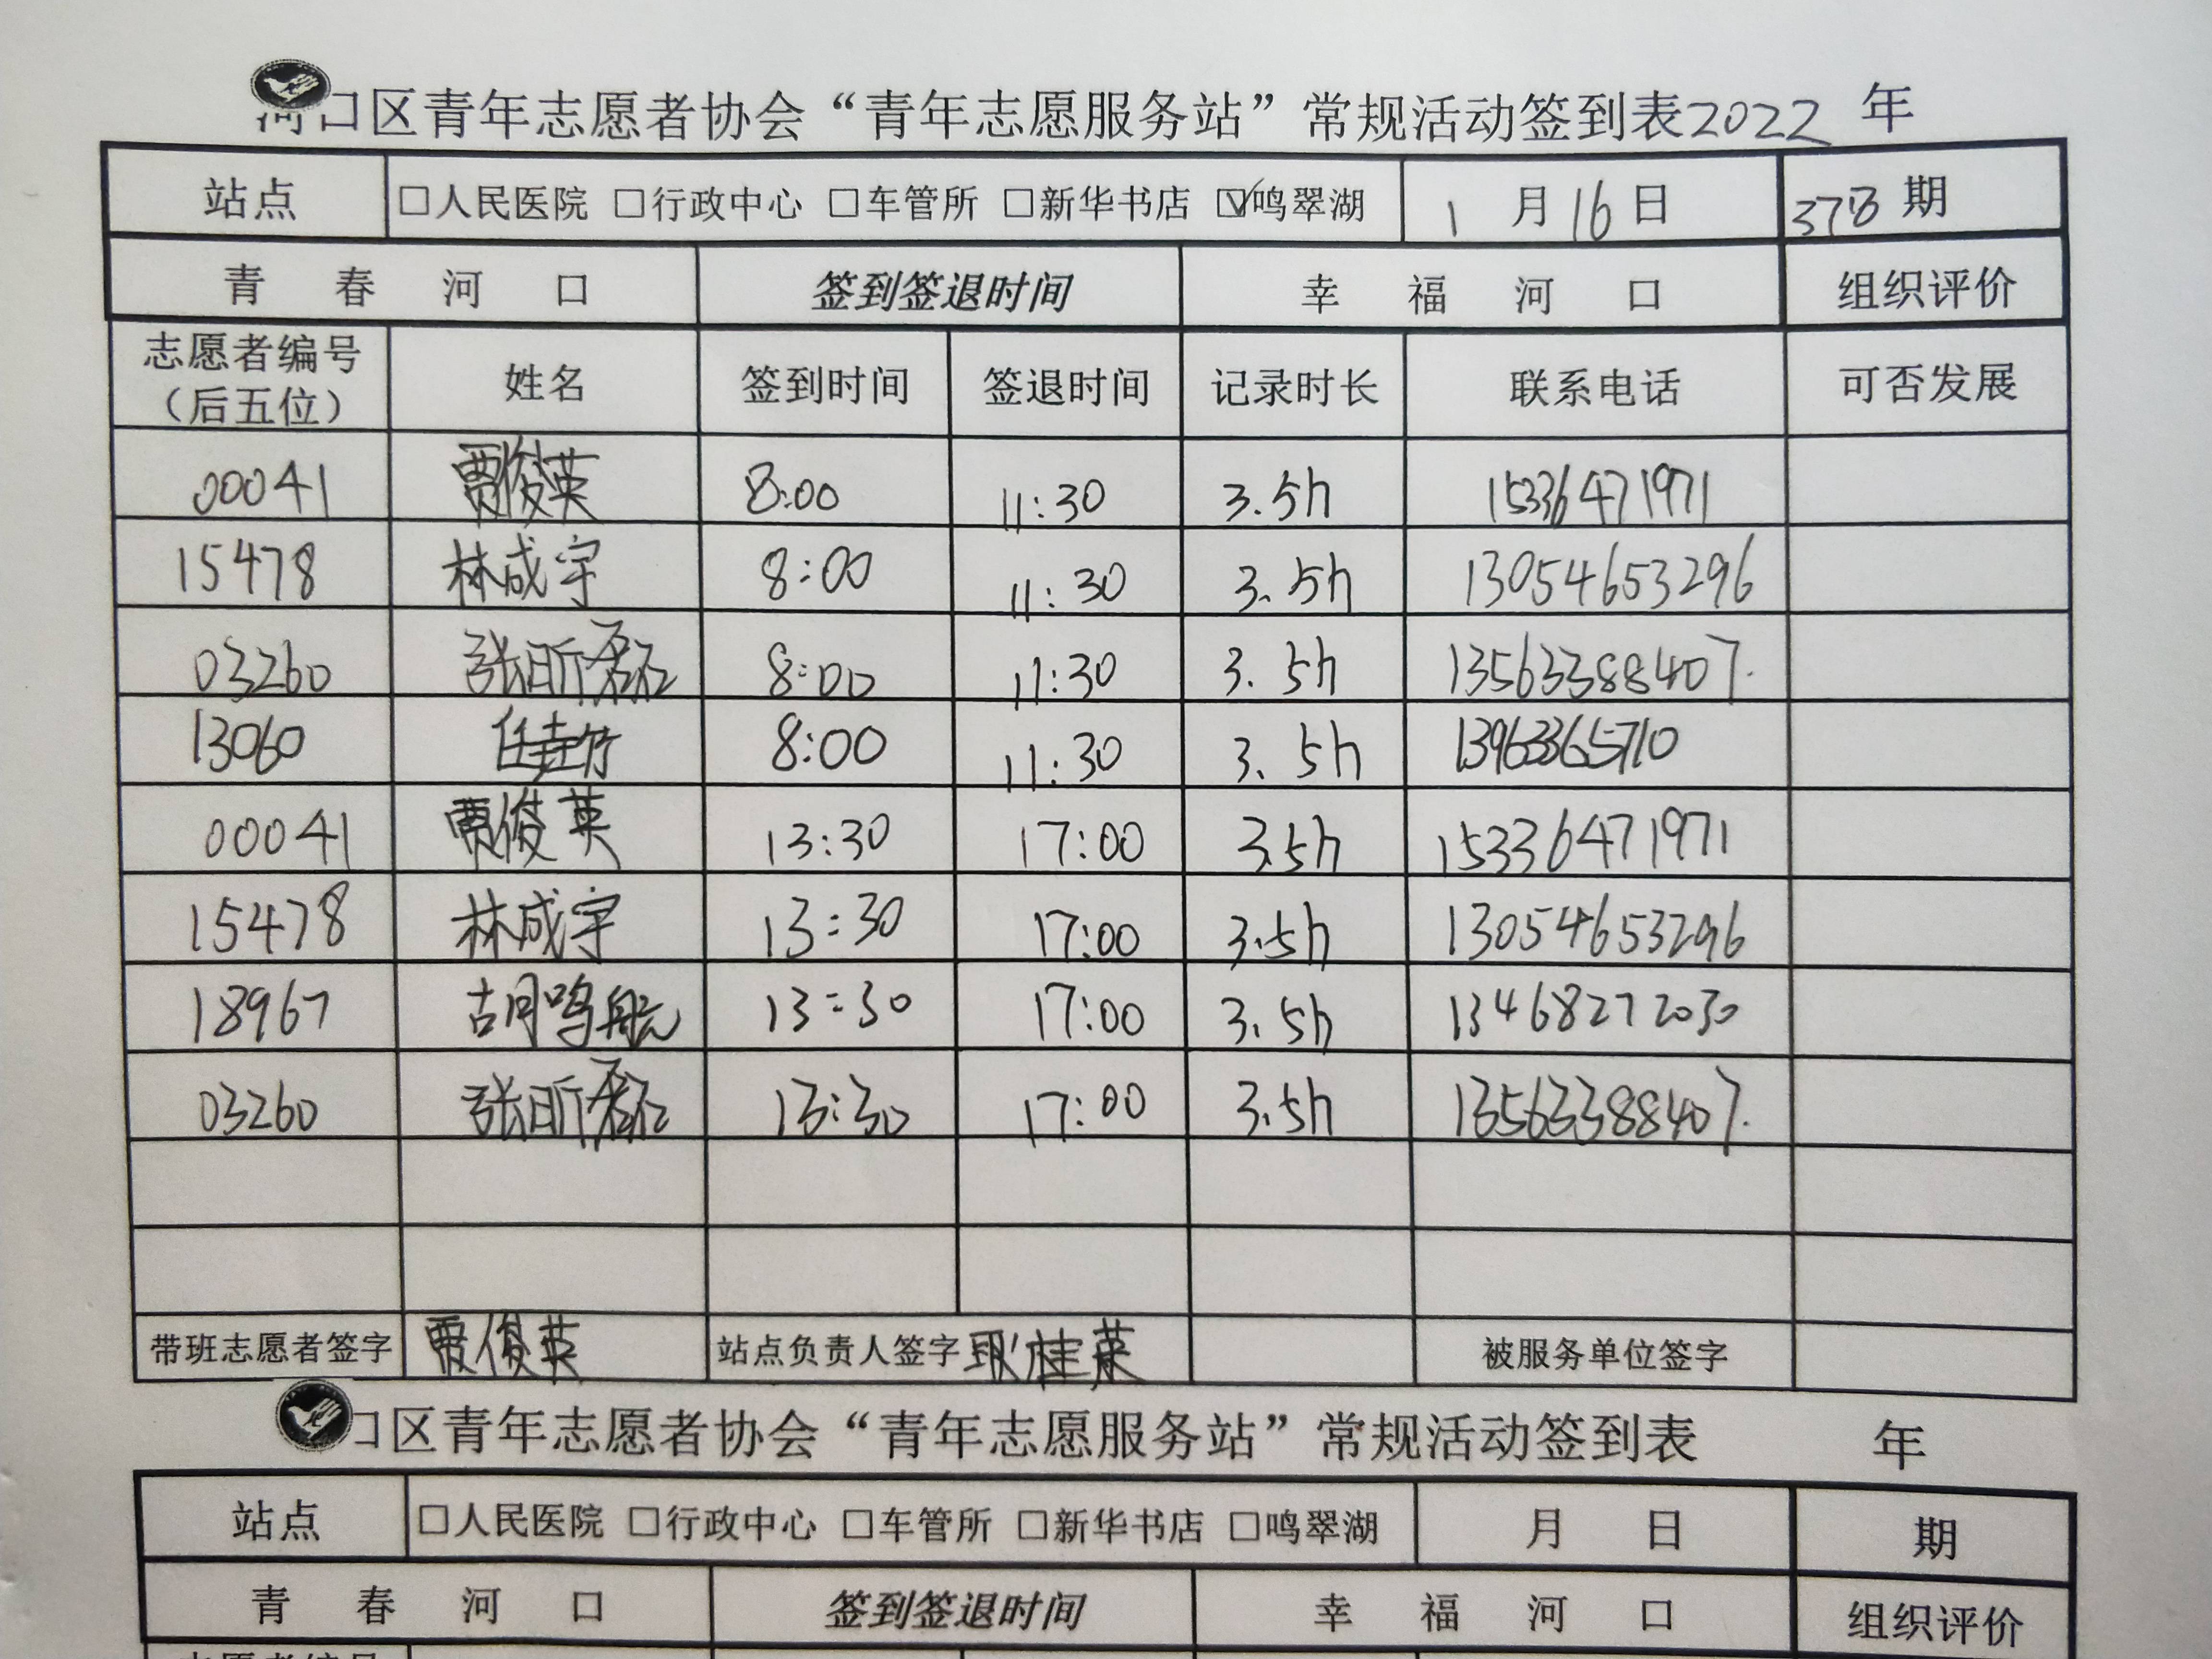 河口区青年志愿者协会“青年志愿服务站”常规活动签到表2022 年
站点 □人民医院 □行政中心 □车管所 □新华书店 ☑鸣翠湖 1 月 16 日 378 期
青 春 河 口 签到签退时间 幸 福 河 口 组织评价
志愿者编号（后五位） 姓名 签到时间 签退时间 记录时长 联系电话 可否发展
00041 贾俊英 8:00 11:30 3.5h 15336471971
15478 林成宇 8:00 11:30 3.5h 13054653296
03260 张昕磊 8:00 11:30 3.5h 13563388407.
13060 8:00 11:30 3.5h 13963365710
00041 贾俊英 13:30 17:00 3.5h 15336471971
15478 林成宇 13:30 17:00 3.5h 13054653296
18967 胡鸣航 13:30 17:00 3.5h 13468272030
03260 张昕磊 13:30 17:00 3.5h 13563388407.
带班志愿者签字 贾俊英 站点负责人签字 耿桂荣 被服务单位签字
口区青年志愿者协会“青年志愿服务站”常规活动签到表 年
站点 □人民医院 □行政中心 □车管所 □新华书店 □鸣翠湖 月 日 期
青 春 河 口 签到签退时间 幸 福 河 口 组织评价
志愿者编号